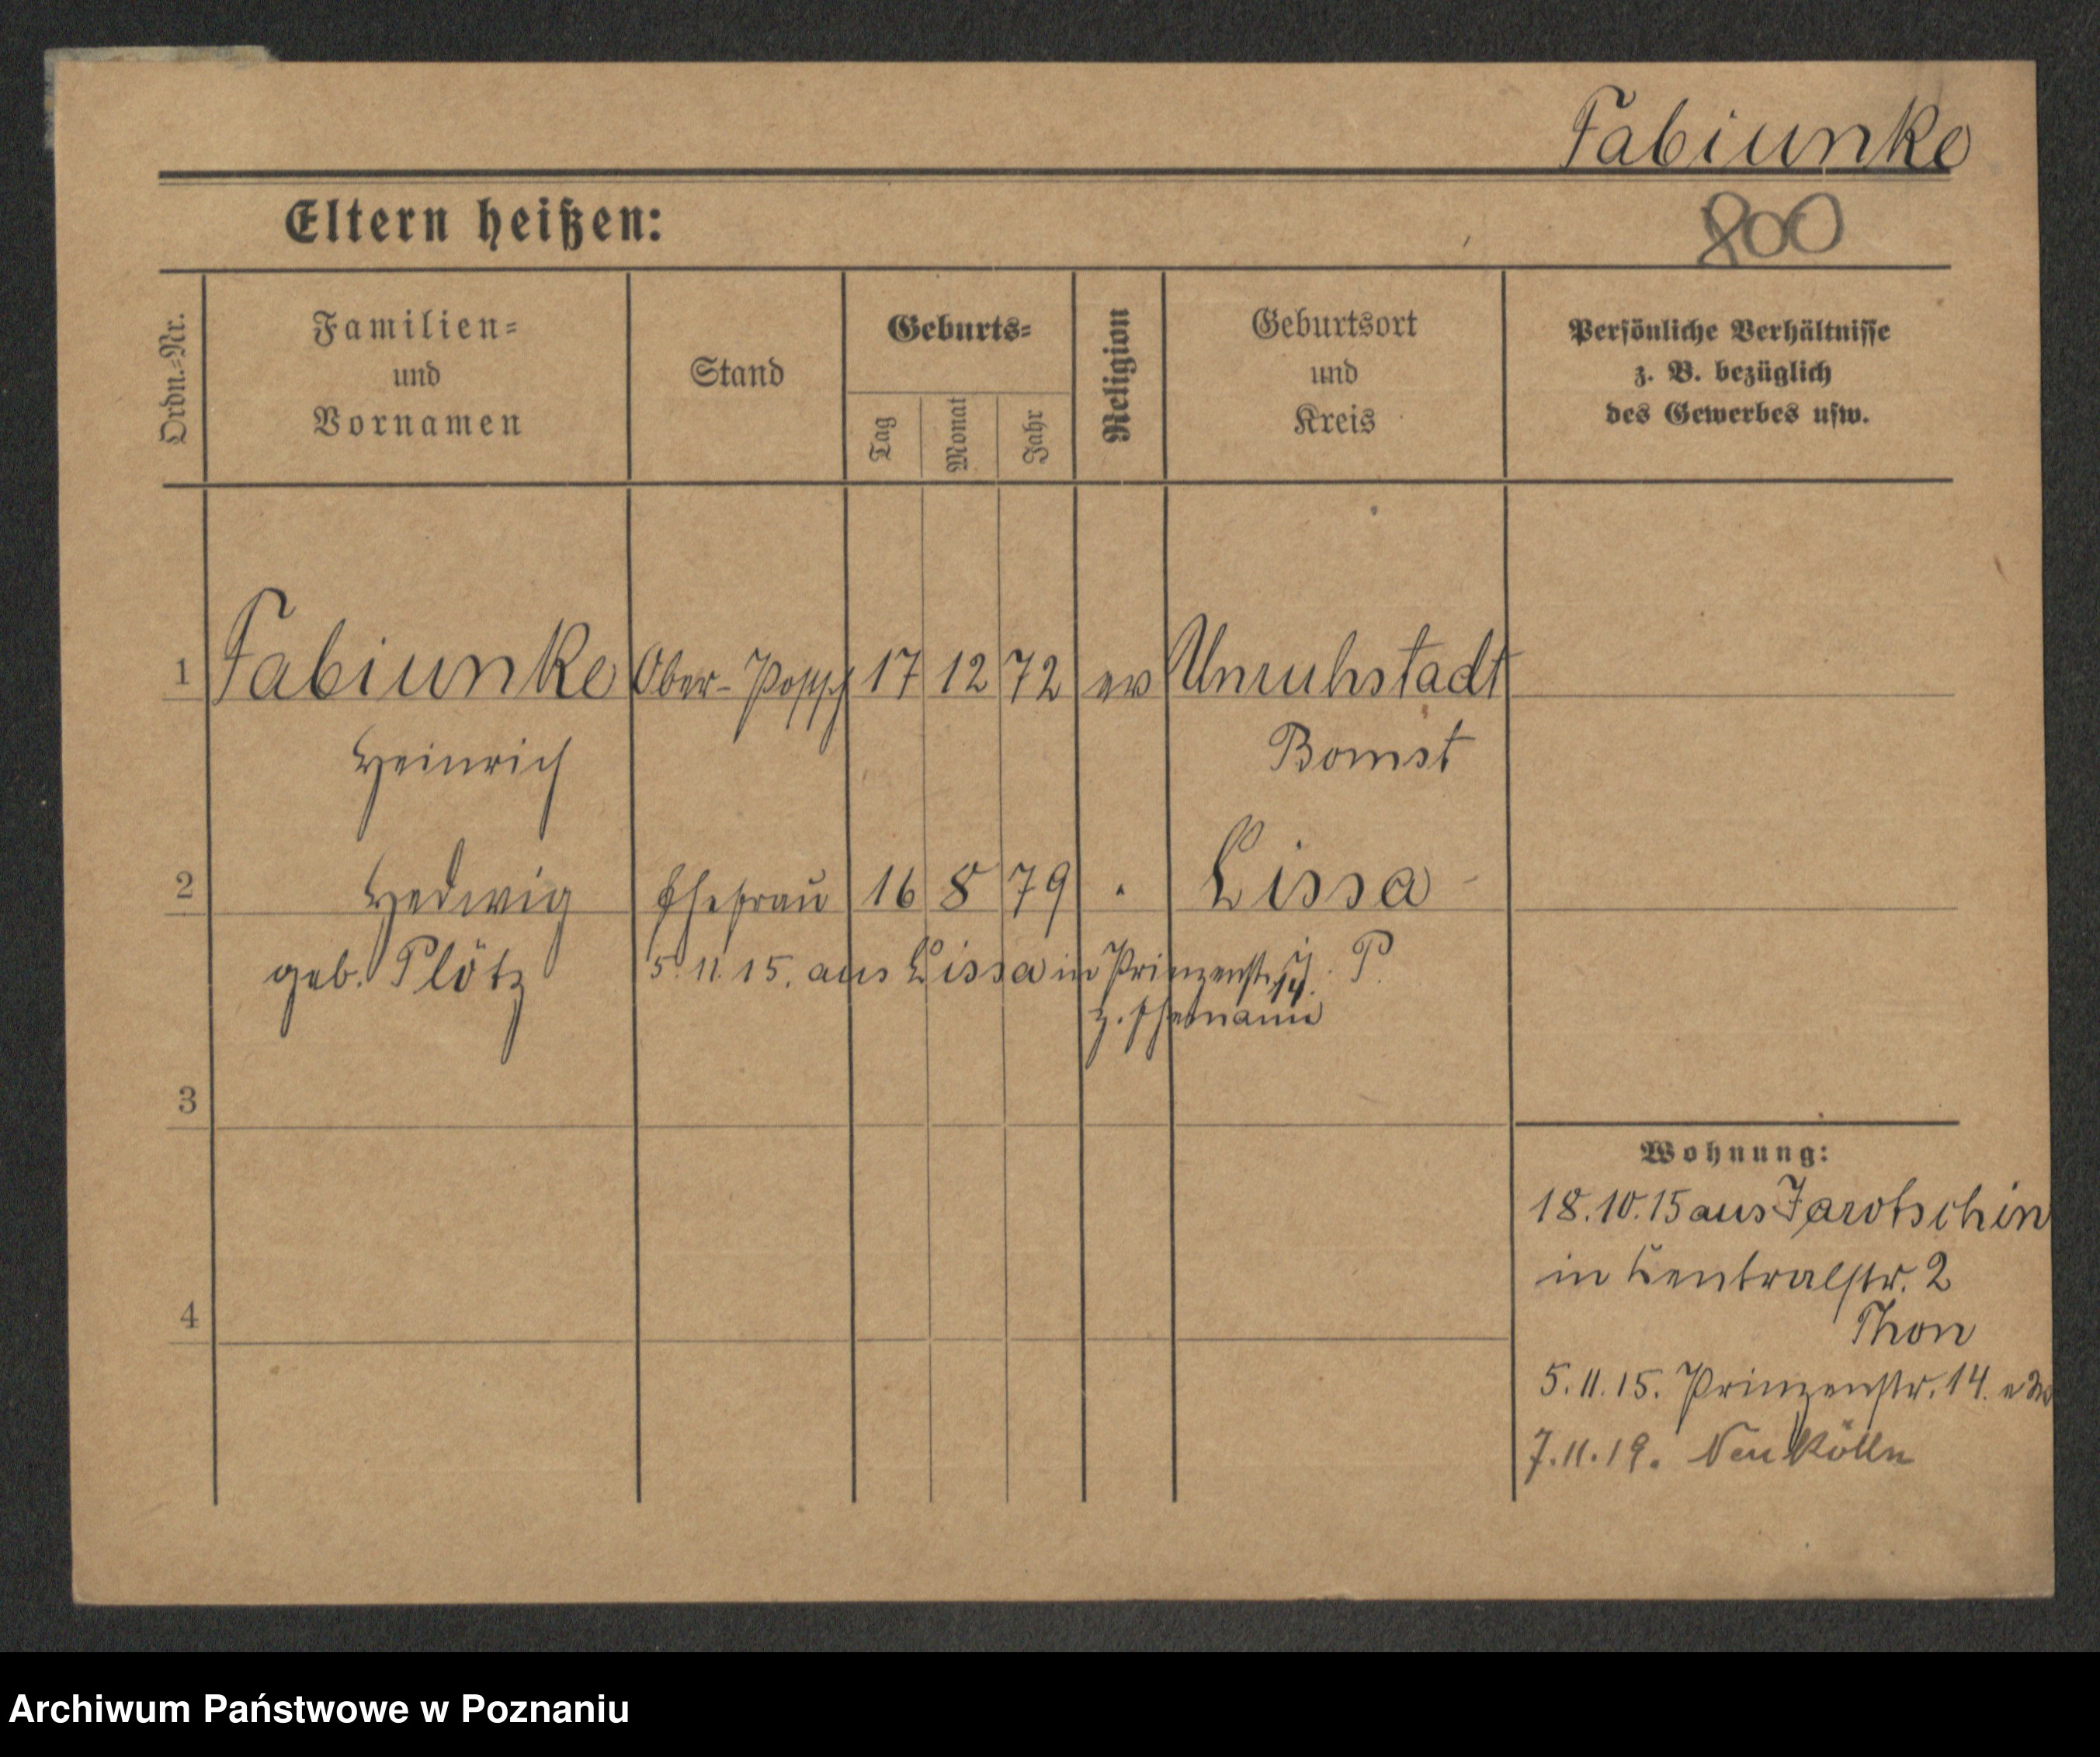 Fabiunke
Eltern heißen:
800
Ordn.=Nr.
Familien=
und
Vornamen
Stand
Geburts=
Tag
Monat
Jahr
Religion
Geburtsort
und
Kreis
Persönliche Verhältnisse
z. B. bezüglich
des Gewerbes usw.
1 Fabiunke Ober- 17 12 72 ev Unruhstadt
Heinrich Bomst
2 Hedwig Ehefrau 16 8 79 Lissa
geb. Plötz 5. 11. 15. aus Lissa in Prinzenstr. 14. P.
z. Ehemann
3
4
Wohnung:
18.10.15 aus Jarotschin
in Zentralstr. 2
Thon
5. 11. 15. Prinzenstr. 14.
7. 11. 19. Neukölln
Archiwum Państwowe w Poznaniu